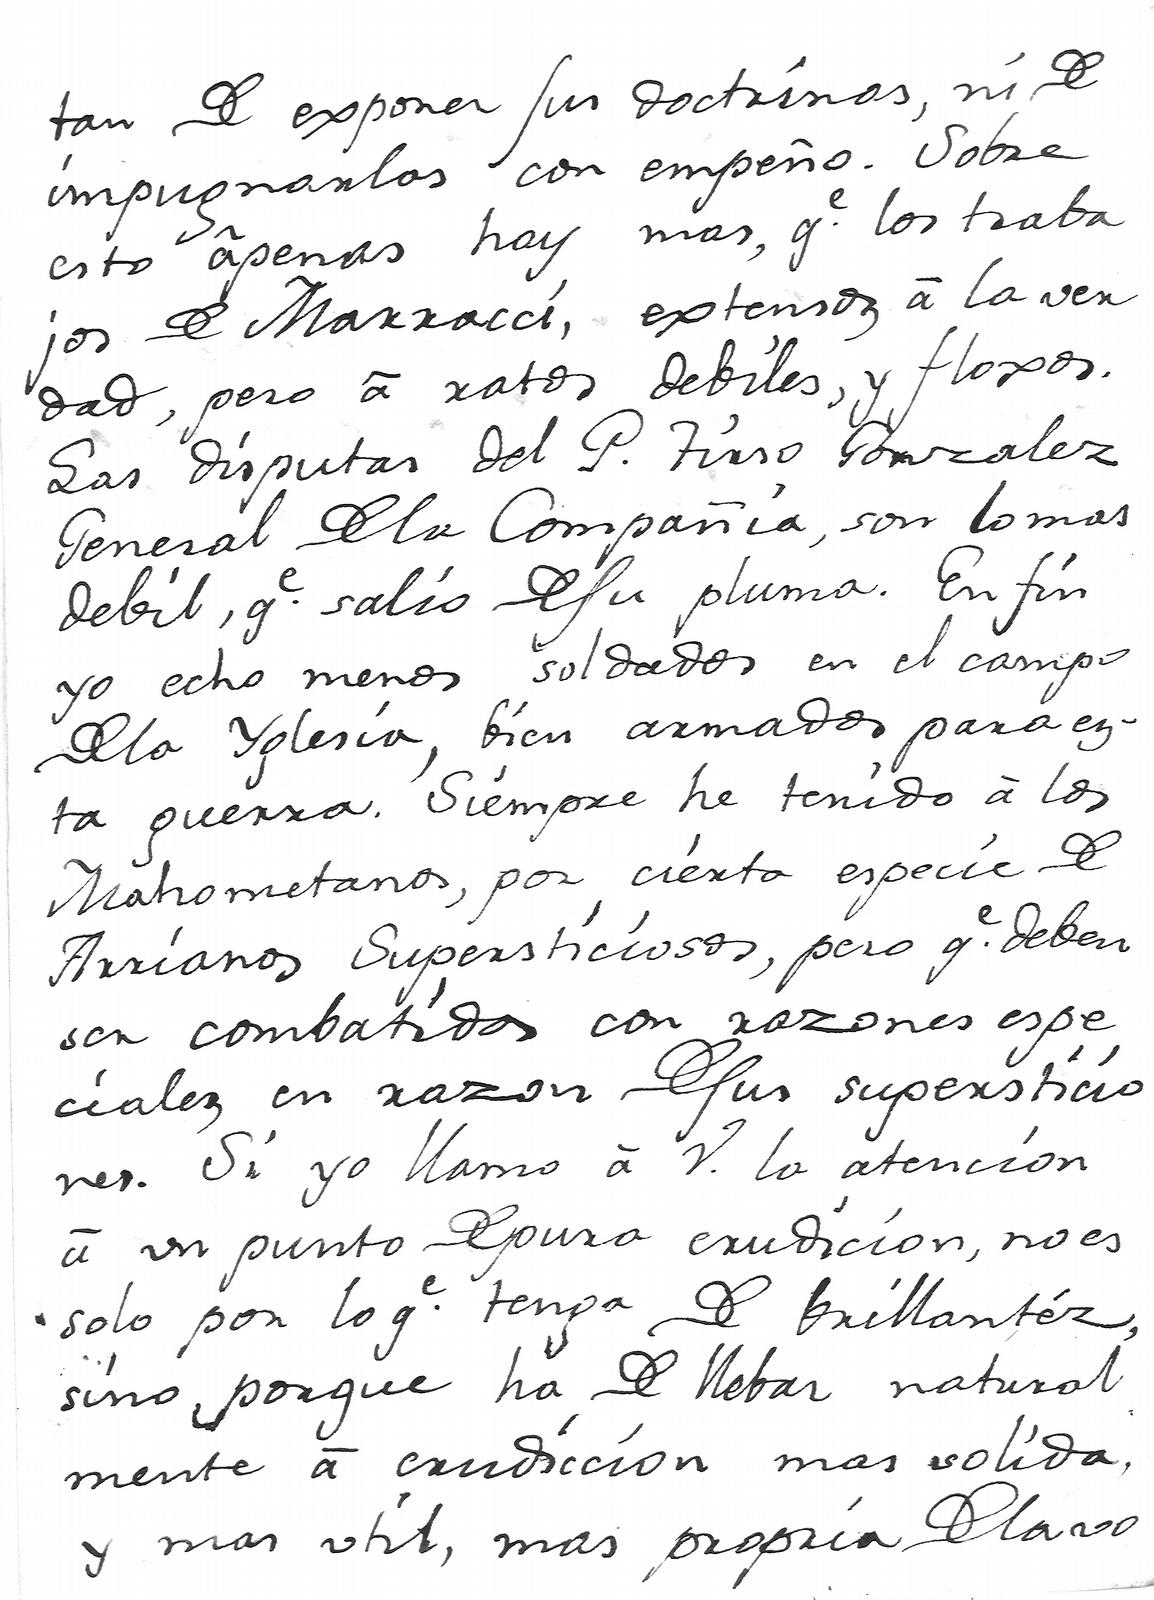 tan de exponer sus doctrinas, ni de
impugnarlas con empeño. Sobre
esto āpenas hay mas, q.e los traba
jos de Marracci, extensos ā la ver
dad, pero ā ratos debiles, y floxos.
Las disputas del P. Tirso Gonzalez
General de la Compañia, son lo mas
debil, q.e salio de su pluma. En fin
yo echo menos soldados en el campo
de la Yglesia, bien armados para es-
ta guerra. Siempre he tenido ā los
Mahometanos, por cierta especie de
Arrianos Supersticiosos, pero q.e deben
ser combatidos con razones espe
ciales en razon de sus supersticio
nes. Si yo llamo ā V. la atencion
ā un punto de pura erudicion, no es
solo por lo q.e tenga de brillantéz,
sino porque ha de llebar natural
mente ā erudiccion mas solida,
y mas util, mas propria de la vo